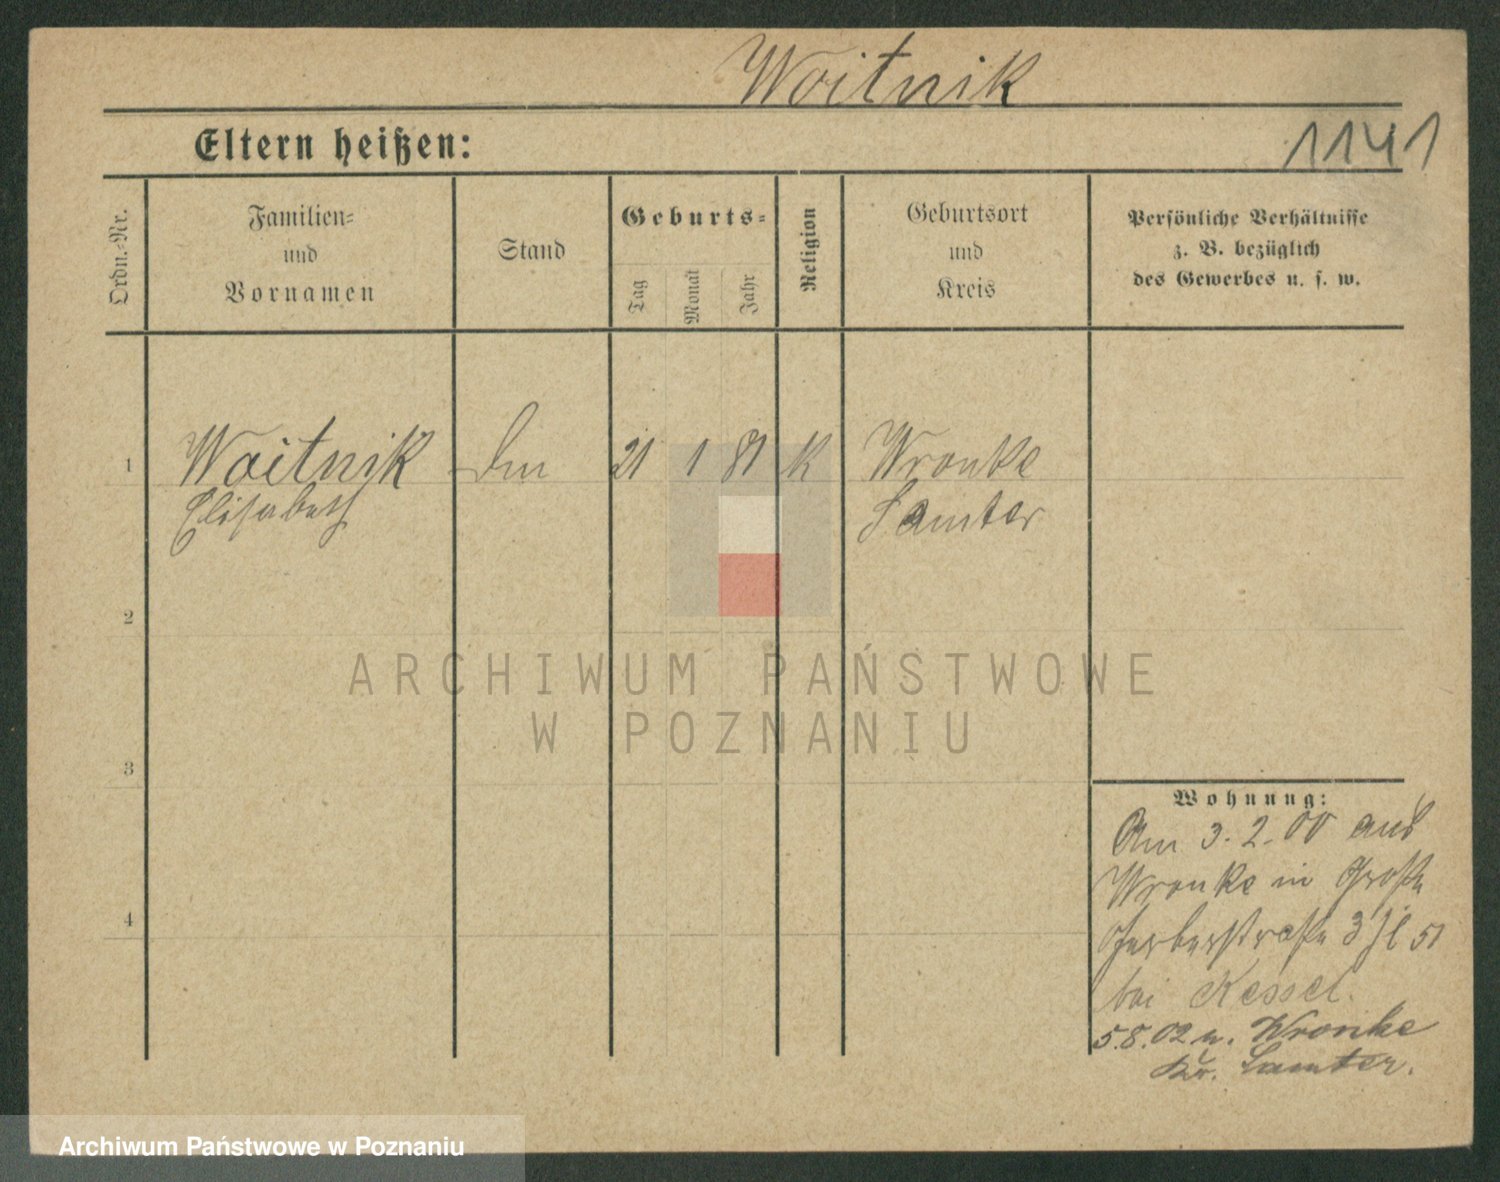 Woitnik
Eltern heißen:
1141
Ordn.-Nr.
Familien-
und
Vornamen
Stand
Geburts-
Tag
Monat
Jahr
Religion
Geburtsort
und
Kreis
Persönliche Verhältnisse
z. B. bezüglich
des Gewerbes u. s. w.
1 Woitnik 21 1 81 K Wronke
Elisabeth Samter
2
ARCHIWUM PAŃSTWOWE
W POZNANIU
3
Wohnung:
Am 3.2.00 aus
Wronke in Große
4
Gerberstraße
bei Kessel.
5.8.02 n. Wronke
Kr. Samter.
Archiwum Państwowe w Poznaniu